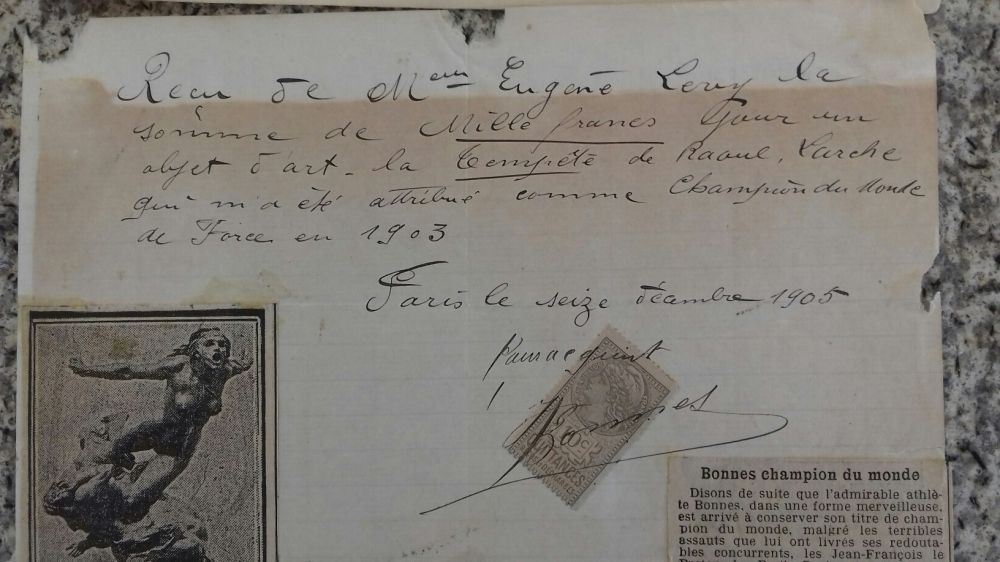 Recu de Mme Eugène Levy la
somme de Mille francs pour un
objet d'art - la Tempête de Raoul Larche
qui m'a été attribué comme Champion du Monde
de Force en 1903
Paris le seize décembre 1905
Pour acquit
Bonnes
10 C
QUITTANCES
Bonnes champion du monde
Disons de suite que l'admirable athlè-
te Bonnes, dans une forme merveilleuse,
est arrivé à conserver son titre de cham-
pion du monde, malgré les terribles
assauts que lui ont livrés ses redouta-
bles concurrents, les Jean-François le